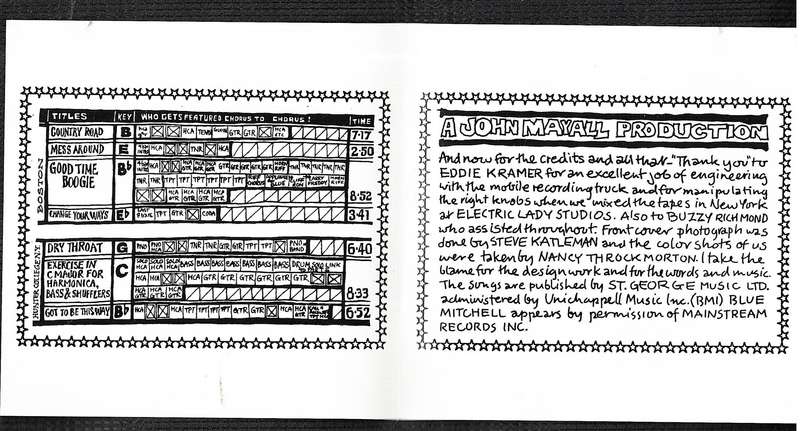 TITLES KEY WHO GETS FEATURED CHORUS TO CHORUS! TIME
BOSTON
COUNTRY ROAD B HCA GTR GTR HCA 7·17
MESS AROUND E HCA TNR HCA 2·50
GOOD TIME Bb HCA GTR GTR GTR GTR GTR TNR TNR TNR
BOOGIE TNR TNR TPT TPT TPT TPT TPT
HCA HCA GTR GTR HCA 8·52
CHANGE YOUR WAYS Eb TPT GTR CODA 3·41
HUNTER COLLEGE N.Y.
DRY THROAT G PNO HCA TNR TNR GTR GTR TPT TPT 6·40
EXERCISE IN C BASS BASS BASS BASS BASS BASS BASS DRUM SOLO LINK
C MAJOR FOR HCA HCA GTR GTR GTR GTR
HARMONICA,
BASS & SHUFFLERS HCA GTR HCA GTR HCA GTR 8·33
GOT TO BE THIS WAY Bb HCA HCA TPT TPT TPT TPT GTR GTR HCA HCA GTR 6·52
A JOHN MAYALL PRODUCTION
And now for the credits and all that - "Thank you" to
EDDIE KRAMER for an excellent job of engineering
with the mobile recording truck and for manipulating
the right knobs when we mixed the tapes in New York
at ELECTRIC LADY STUDIOS. Also to BUZZY RICHMOND
who assisted throughout. Front cover photograph was
done by STEVE KATLEMAN and the color shots of us
were taken by NANCY THROCKMORTON. I take the
blame for the design work and for the words and music.
The songs are published by ST. GEORGE MUSIC LTD.
administered by Unichappell Music Inc. (BMI) BLUE
MITCHELL appears by permission of MAINSTREAM
RECORDS INC.